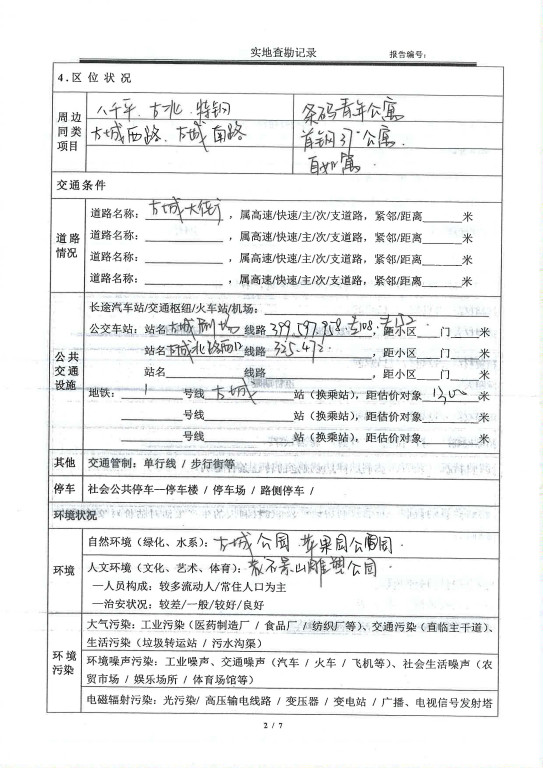 实地查勘记录 报告编号：
4.区位状况
周边同类项目
八千平．古北．特钢 条码青年公寓
古城西路．古城南路 首钢 公寓．
寓．
交通条件
道路情况
道路名称：古城大街，属高速/快速/主/次/支道路，紧邻/距离______米
道路名称：____________，属高速/快速/主/次/支道路，紧邻/距离______米
道路名称：____________，属高速/快速/主/次/支道路，紧邻/距离______米
道路名称：____________，属高速/快速/主/次/支道路，紧邻/距离______米
公共交通设施
长途汽车站/交通枢纽/火车站/机场：
公交车站：站名古城剧场线路399.597.958.专108.专152．，距小区____门____米
站名古城北路西口线路325.472．，距小区____门____米
站名________线路____________，距小区____门____米
地铁：1号线古城站（换乘站），距估价对象1300米
________号线________站（换乘站），距估价对象______米
________号线________站（换乘站），距估价对象______米
其他 交通管制：单行线 / 步行街等
停车 社会公共停车—停车楼 / 停车场 / 路侧停车 /
环境状况
环境
自然环境（绿化、水系）：古城公园．苹果园公园．
人文环境（文化、艺术、体育）：石景山雕塑公园．
—人员构成：较多流动人/常住人口为主
—治安状况：较差/一般/较好/良好
环境污染
大气污染：工业污染（医药制造厂 / 食品厂 / 纺织厂等）、交通污染（直临主干道）、
生活污染（垃圾转运站 / 污水沟渠）
环境噪声污染：工业噪声、交通噪声（汽车 / 火车 / 飞机等）、社会生活噪声（农
贸市场 / 娱乐场所 / 体育场馆等）
电磁辐射污染：光污染/ 高压输电线路 / 变压器 / 变电站 / 广播、电视信号发射塔
2 / 7